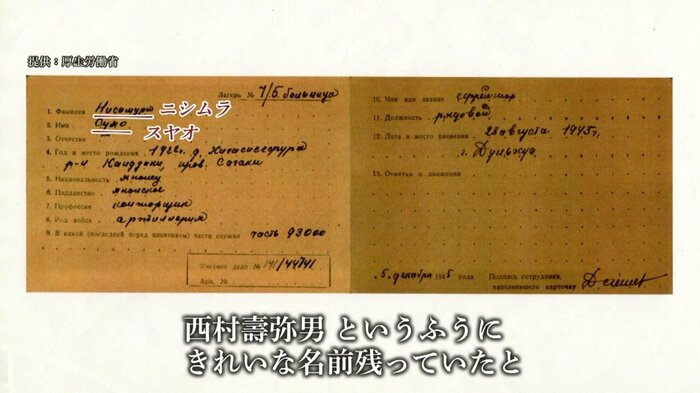 提供：厚生労働省
Лагерь № 7/Б. больница
1. Фамилия Нисимура ニシムラ
2. Имя Суяо スヤオ
3. Отчество
4. Год и место рождения 1922г. д.
р-н пров.
5. Национальность японец
6. Подданство японское
7. Профессия конторщик
8. Род войск артиллерия
9. В какой (последней перед пленением) части служил часть 93000
Учетное дело № 141/44741
Арх. №
10. Чин или звание ефрейтор
11. Должность рядовой
12. Дата и место пленения 23 августа 1945г.
г. Дуньхуа
13. Отметки о движении
„5„ декабря 1945 года. Подпись сотрудника,
заполнявшего карточку
西村壽弥男 というふうに
きれいな名前残っていたと